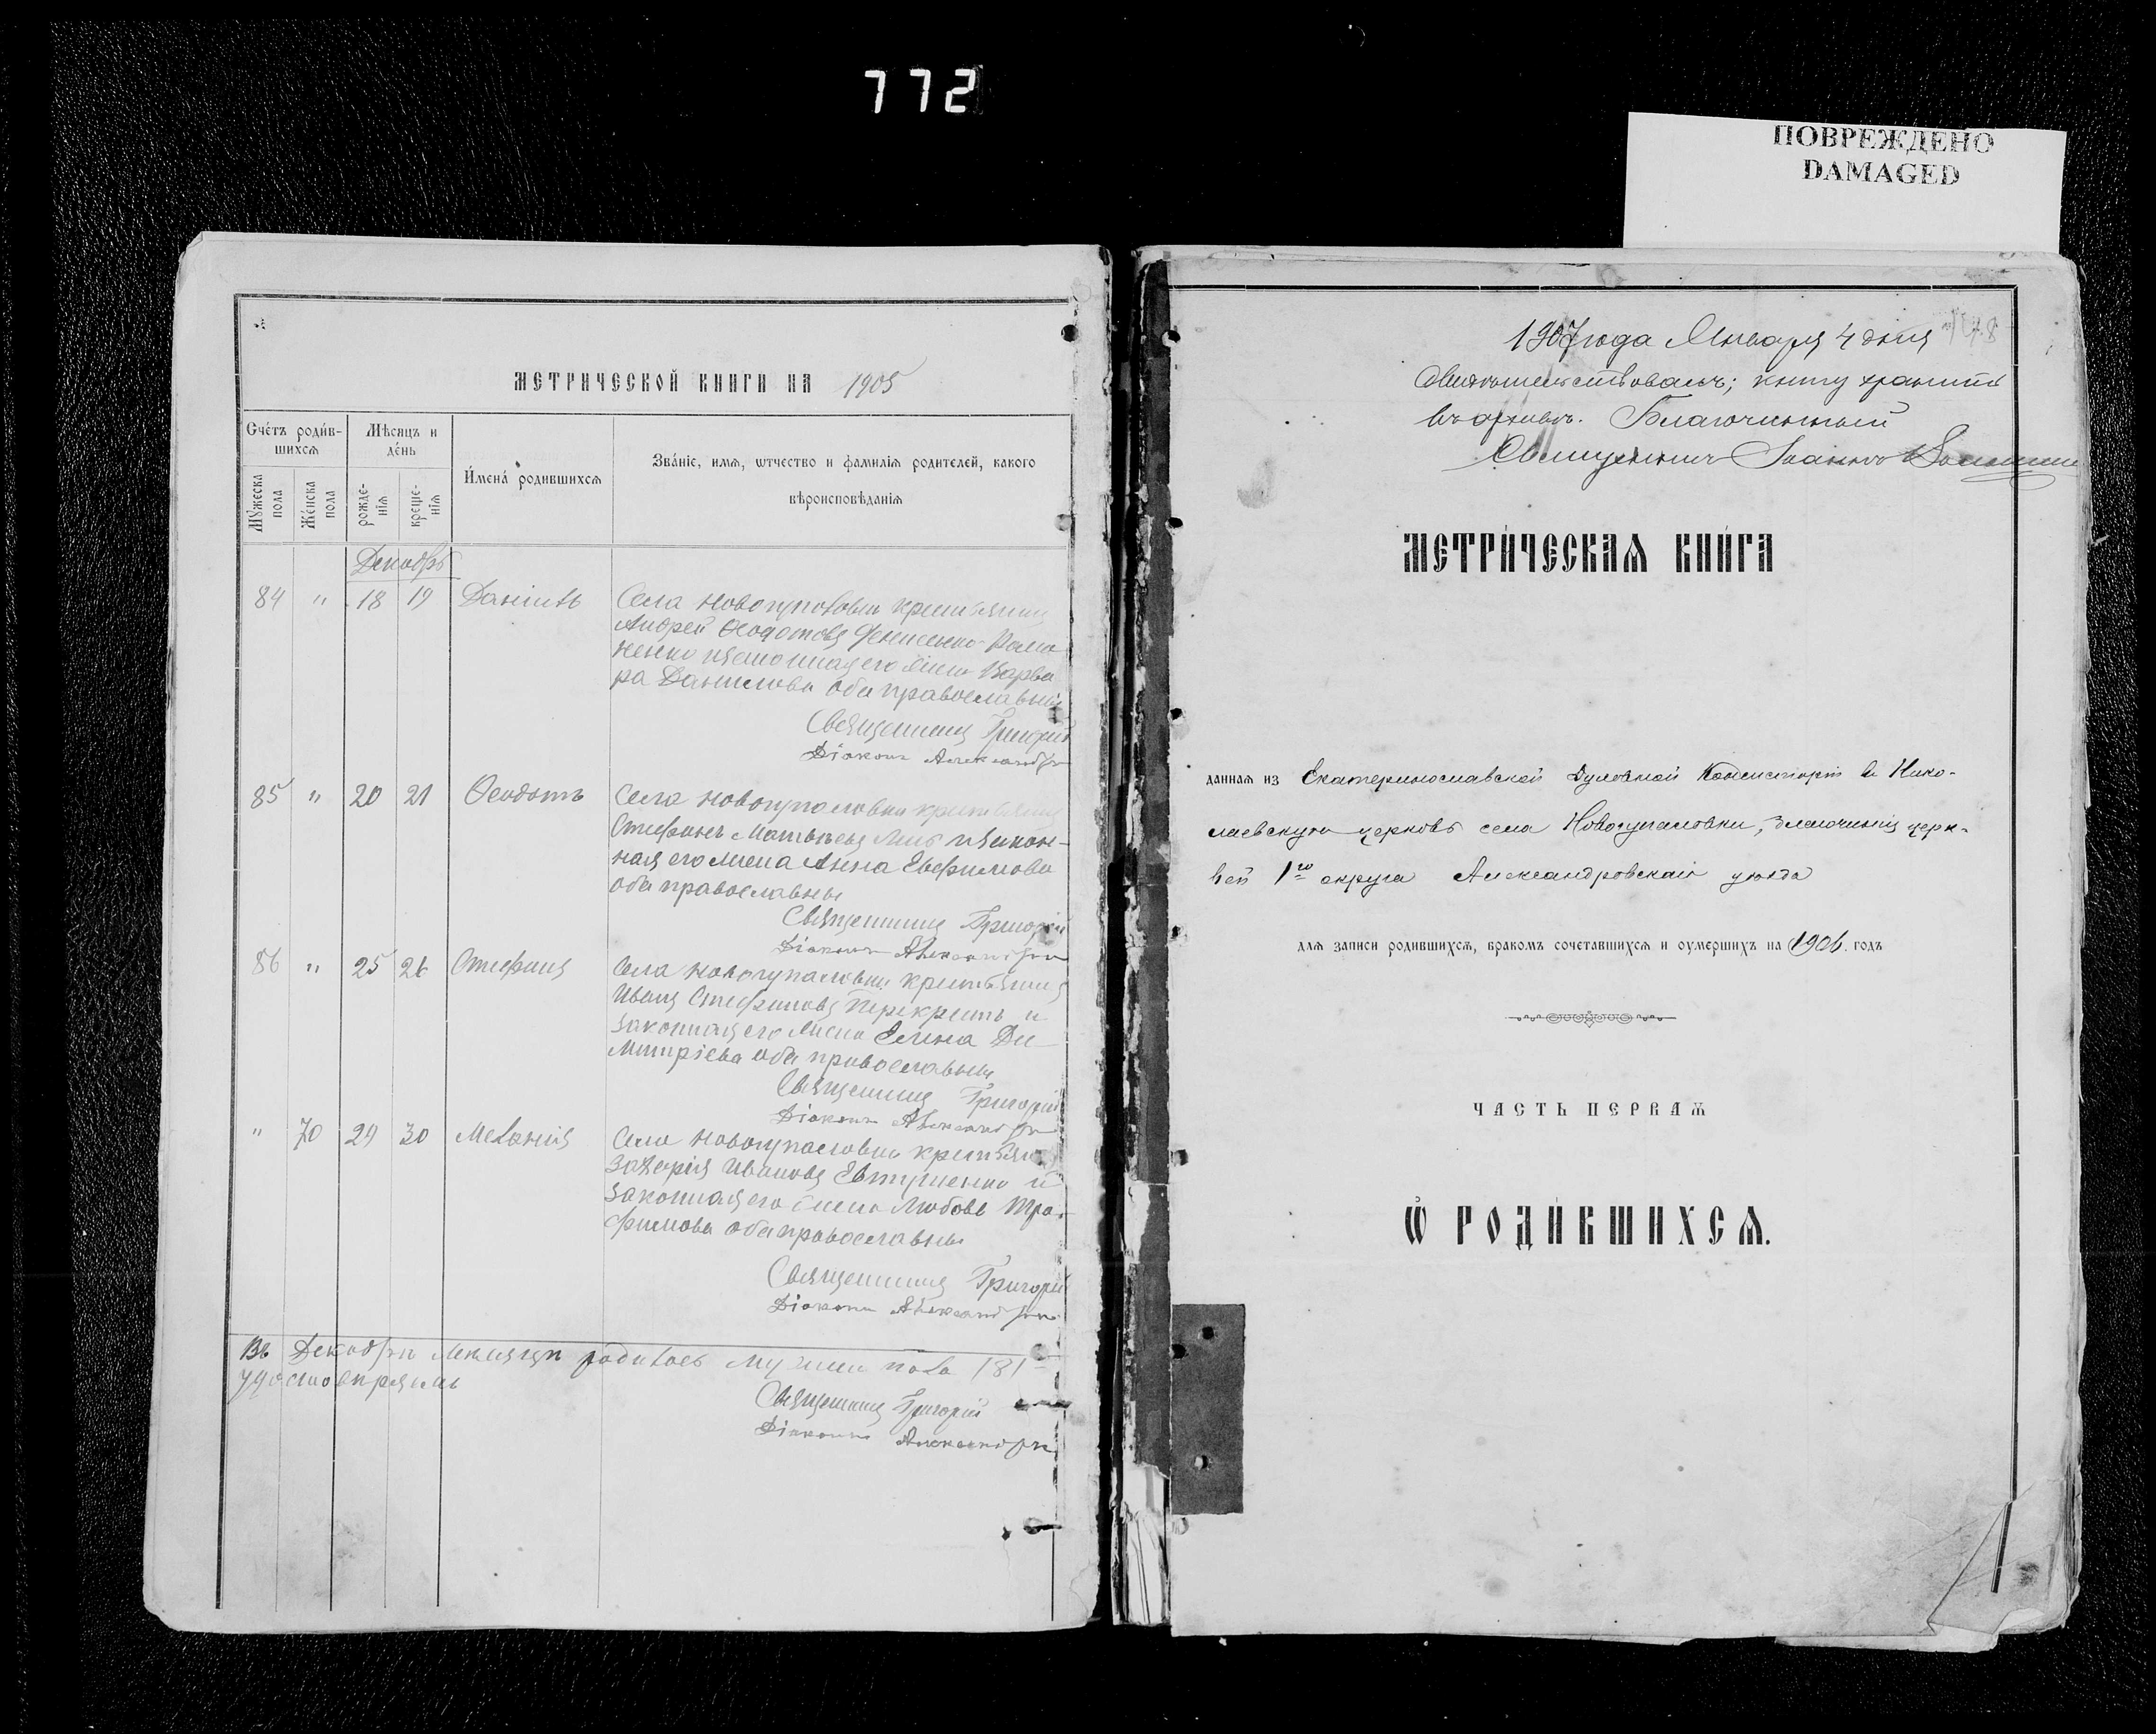 772
ПОВРЕЖДЕНО
DAMAGED
МЕТРИЧЕСКОЙ КНИГИ НА 1905
Счетъ родив-
шихся
Мѣсяцъ и
день
Имена родившихся
Званіе, имя, ѿтчество и фамилія родителей, какого
вѣроисповѣданія
Мужеска пола
Женска пола
рожде-
нія
креще-
нія
Декабрь
84 " 18 19 Даніилъ
Села Новогупаловки крестьянинъ
Андрей Ѳеодотовъ Денисенко-
законная его жена Варва
ра Данилова оба православные
Священникъ Григорій
Діаконъ Александръ
85 " 20 21 Ѳеодотъ
Села Новогупаловки крестьянинъ
Стефанъ Матвѣевъ и закон-
ная его жена Анна Евфимова
оба православные
Священникъ Григорій
Діаконъ Александръ
86 " 25 26 Стефанъ
Села Новогупаловки крестьянинъ
Иванъ Стефановъ Перекрестъ и
законная его жена Елена Ди-
митріева оба православные
Священникъ Григорій
Діаконъ Александръ
" 70 29 30 Меланія
Села Новогупаловки крестьянинъ
Захарія Ивановъ Евтушенко и
законная его жена Любовь Тро-
фимова оба православные
Священникъ Григорій
Діаконъ Александръ
Въ Декабрѣ мѣсяцѣ родилось мужеска пола 181
Священникъ Григорій
Діаконъ Александръ
1907 года Января 4 дня
Свидѣтельствовалъ; книгу хранить
въ архивѣ. Благочинный
Священникъ Іоаннъ
МЕТРИЧЕСКАЯ КНИГА
данная из Екатеринославской Духовной Консисторіи в Нико-
лаевскую церковь села Новогупаловки, благочинія церк-
вей 1го округа Александровскаго уѣзда
для записи родившихся, бракомъ сочетавшихся и оумершихъ на 1906. годъ
ЧАСТЬ ПЕРВАЯ
Ѡ РОДИВШИХСЯ.